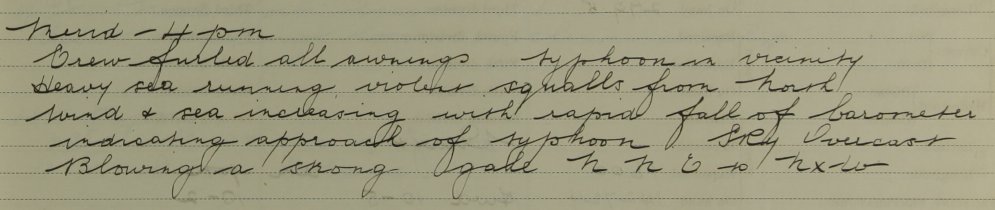 Merid - 4 pm
Crew furled all awnings. typhoon in vicinity
Heavy sea running, violent squalls from North
Wind & sea increasing with rapid fall of barometer
indicating approach of typhoon Sky Overcast
Blowing a strong gale N N E to N x W